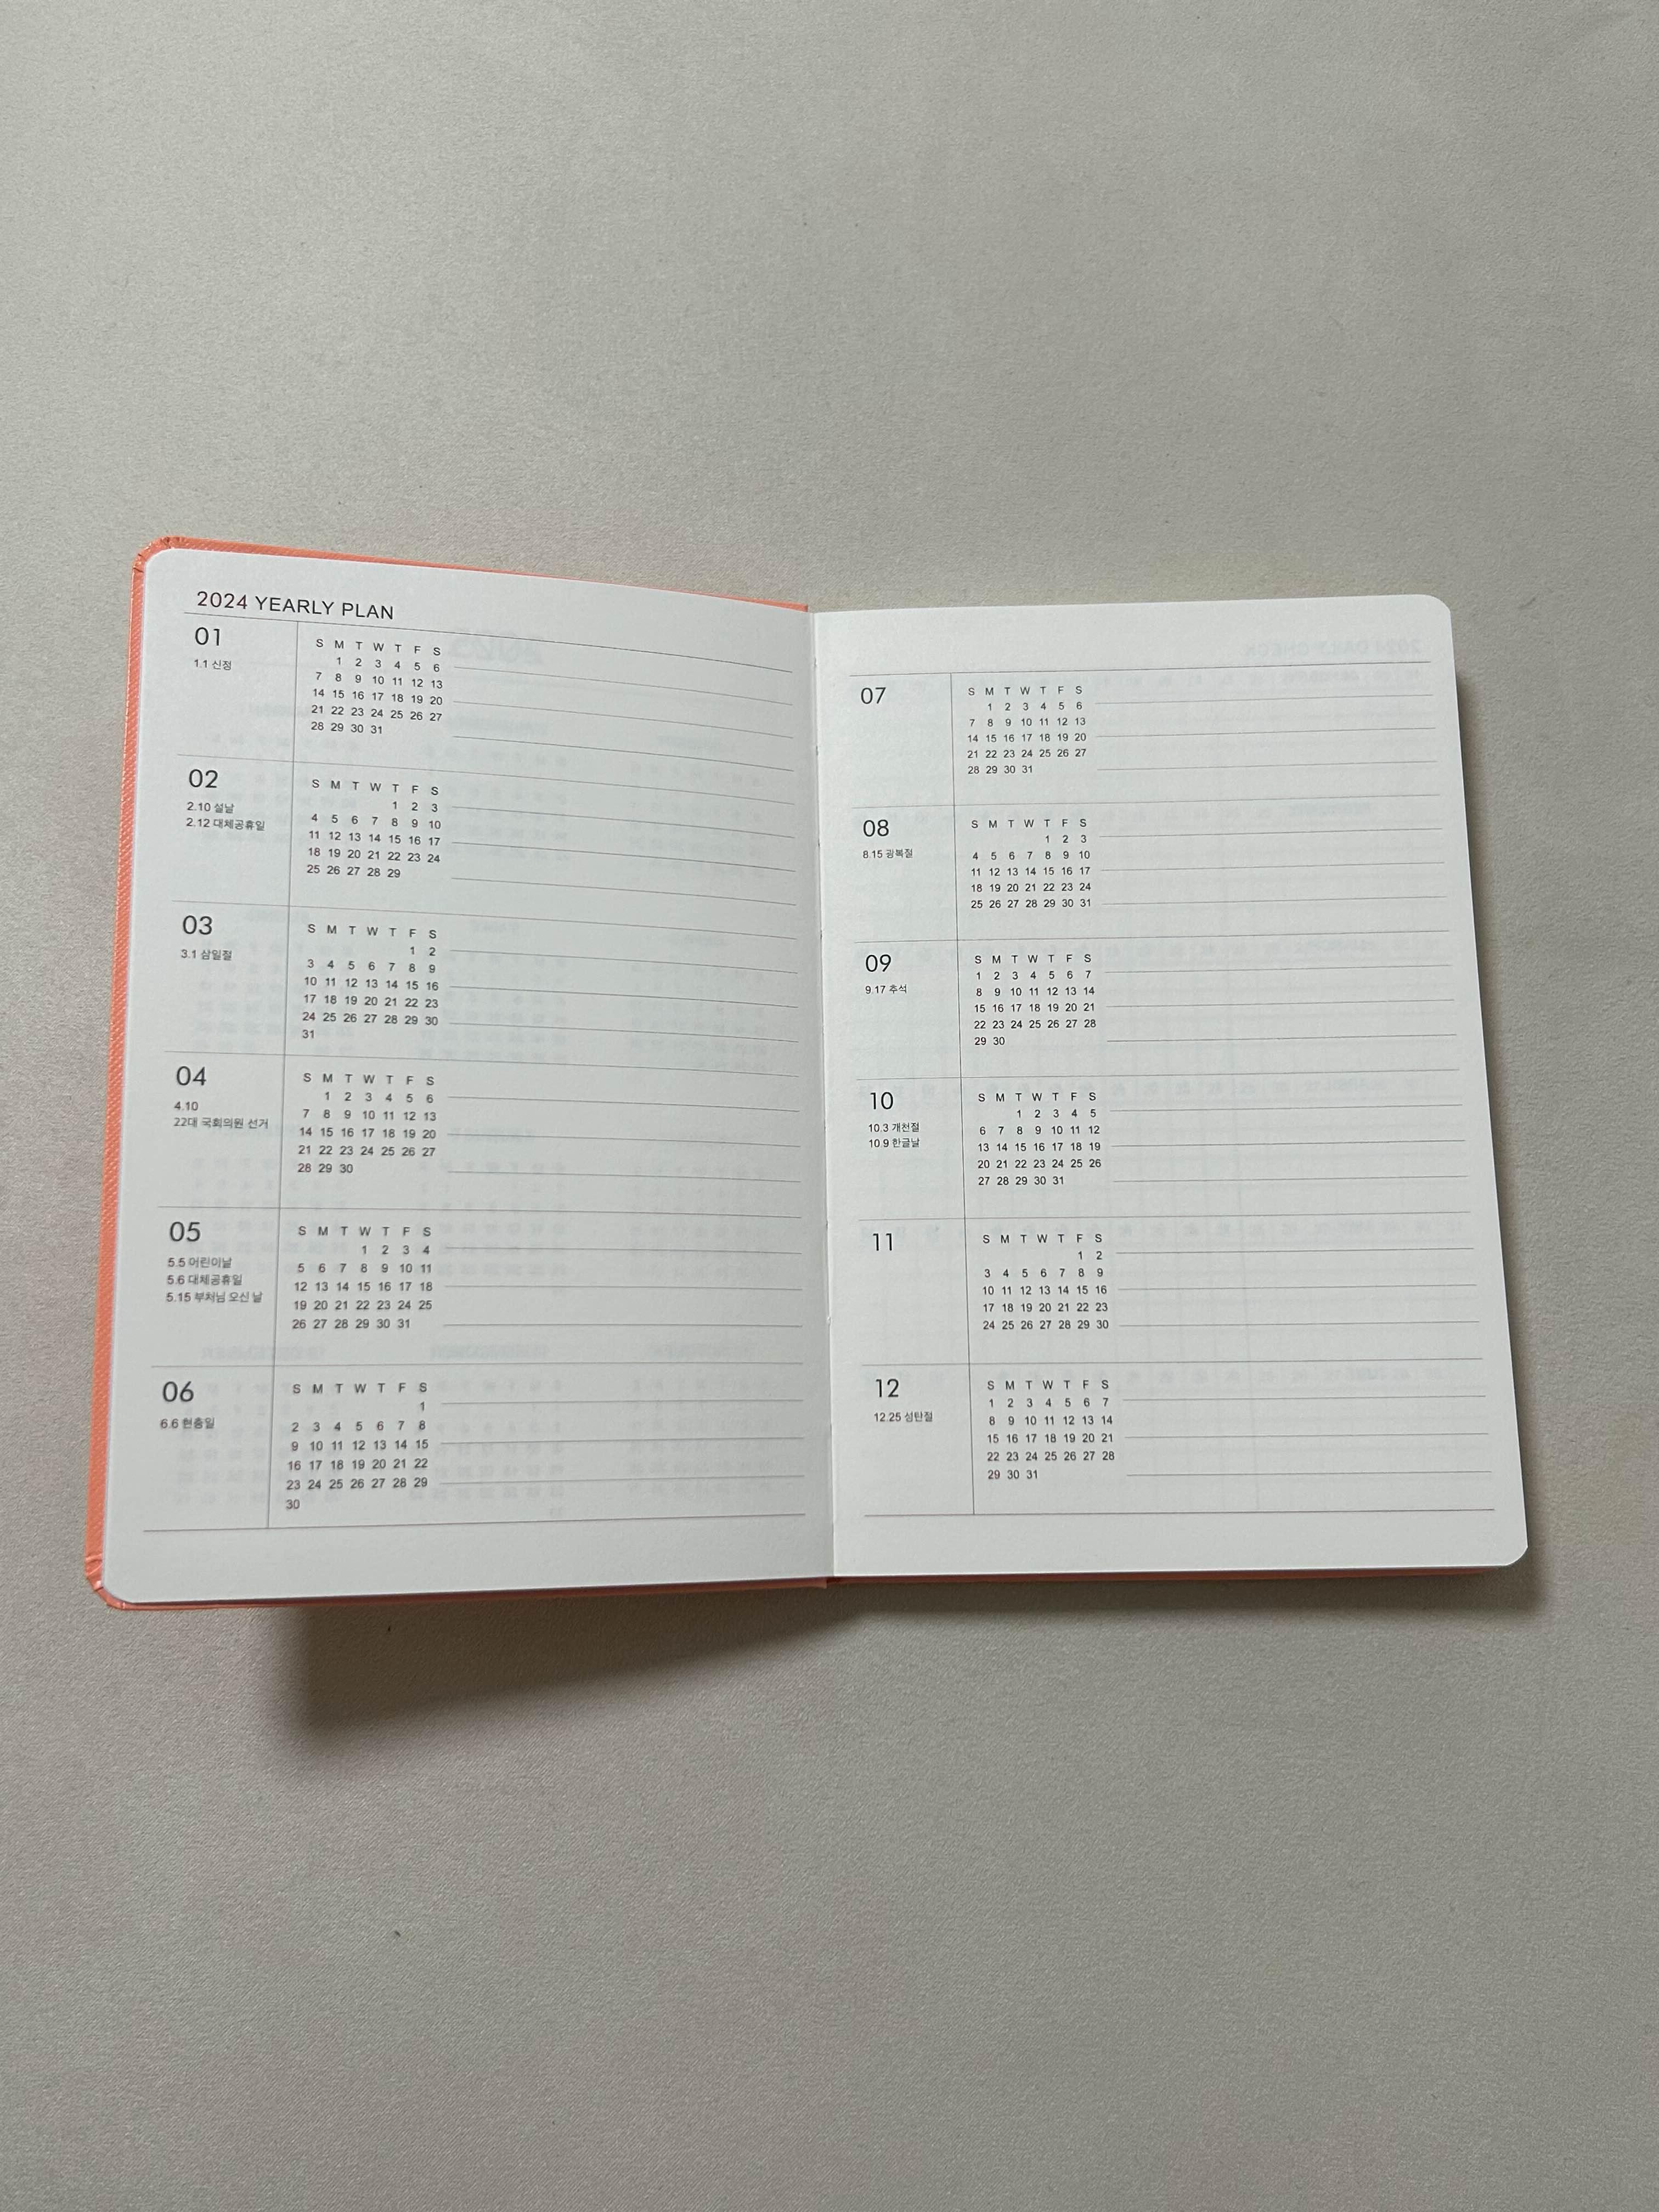 2024 YEARLY PLAN
01
1.1 신정
S M T W T F S
1 2 3 4 5 6
7 8 9 10 11 12 13
14 15 16 17 18 19 20
21 22 23 24 25 26 27
28 29 30 31
02
2.10 설날
2.12 대체공휴일
S M T W T F S
1 2 3
4 5 6 7 8 9 10
11 12 13 14 15 16 17
18 19 20 21 22 23 24
25 26 27 28 29
03
3.1 삼일절
S M T W T F S
1 2
3 4 5 6 7 8 9
10 11 12 13 14 15 16
17 18 19 20 21 22 23
24 25 26 27 28 29 30
31
04
4.10
22대 국회의원 선거
S M T W T F S
1 2 3 4 5 6
7 8 9 10 11 12 13
14 15 16 17 18 19 20
21 22 23 24 25 26 27
28 29 30
05
5.5 어린이날
5.6 대체공휴일
5.15 부처님 오신 날
S M T W T F S
1 2 3 4
5 6 7 8 9 10 11
12 13 14 15 16 17 18
19 20 21 22 23 24 25
26 27 28 29 30 31
06
6.6 현충일
S M T W T F S
1
2 3 4 5 6 7 8
9 10 11 12 13 14 15
16 17 18 19 20 21 22
23 24 25 26 27 28 29
30
07
S M T W T F S
1 2 3 4 5 6
7 8 9 10 11 12 13
14 15 16 17 18 19 20
21 22 23 24 25 26 27
28 29 30 31
08
8.15 광복절
S M T W T F S
1 2 3
4 5 6 7 8 9 10
11 12 13 14 15 16 17
18 19 20 21 22 23 24
25 26 27 28 29 30 31
09
9.17 추석
S M T W T F S
1 2 3 4 5 6 7
8 9 10 11 12 13 14
15 16 17 18 19 20 21
22 23 24 25 26 27 28
29 30
10
10.3 개천절
10.9 한글날
S M T W T F S
1 2 3 4 5
6 7 8 9 10 11 12
13 14 15 16 17 18 19
20 21 22 23 24 25 26
27 28 29 30 31
11
S M T W T F S
1 2
3 4 5 6 7 8 9
10 11 12 13 14 15 16
17 18 19 20 21 22 23
24 25 26 27 28 29 30
12
12.25 성탄절
S M T W T F S
1 2 3 4 5 6 7
8 9 10 11 12 13 14
15 16 17 18 19 20 21
22 23 24 25 26 27 28
29 30 31